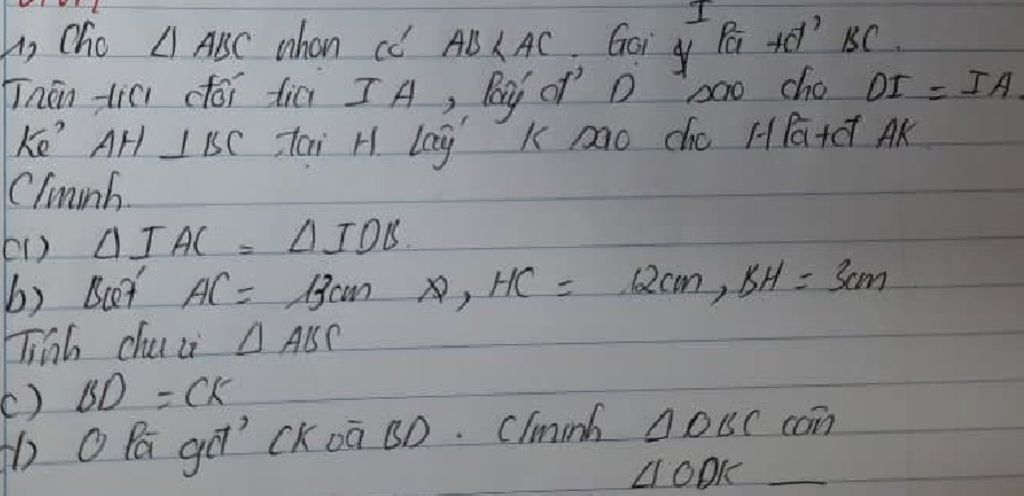 1, Cho Δ ABC nhọn có AB < AC. Gọi I là tđ' BC.
Trên tia đối tia IA, lấy đ' D sao cho DI = IA.
Kẻ AH ⊥ BC tại H. Lấy K sao cho H là tđ AK
C/minh.
a) Δ IAC = Δ IDB.
b) Biết AC = 13cm, HC = 12cm, BH = 3cm
Tính chu vi Δ ABC
c) BD = CK
d) O là gđ' CK và BD. C/minh Δ OBC cân
Δ ODK __